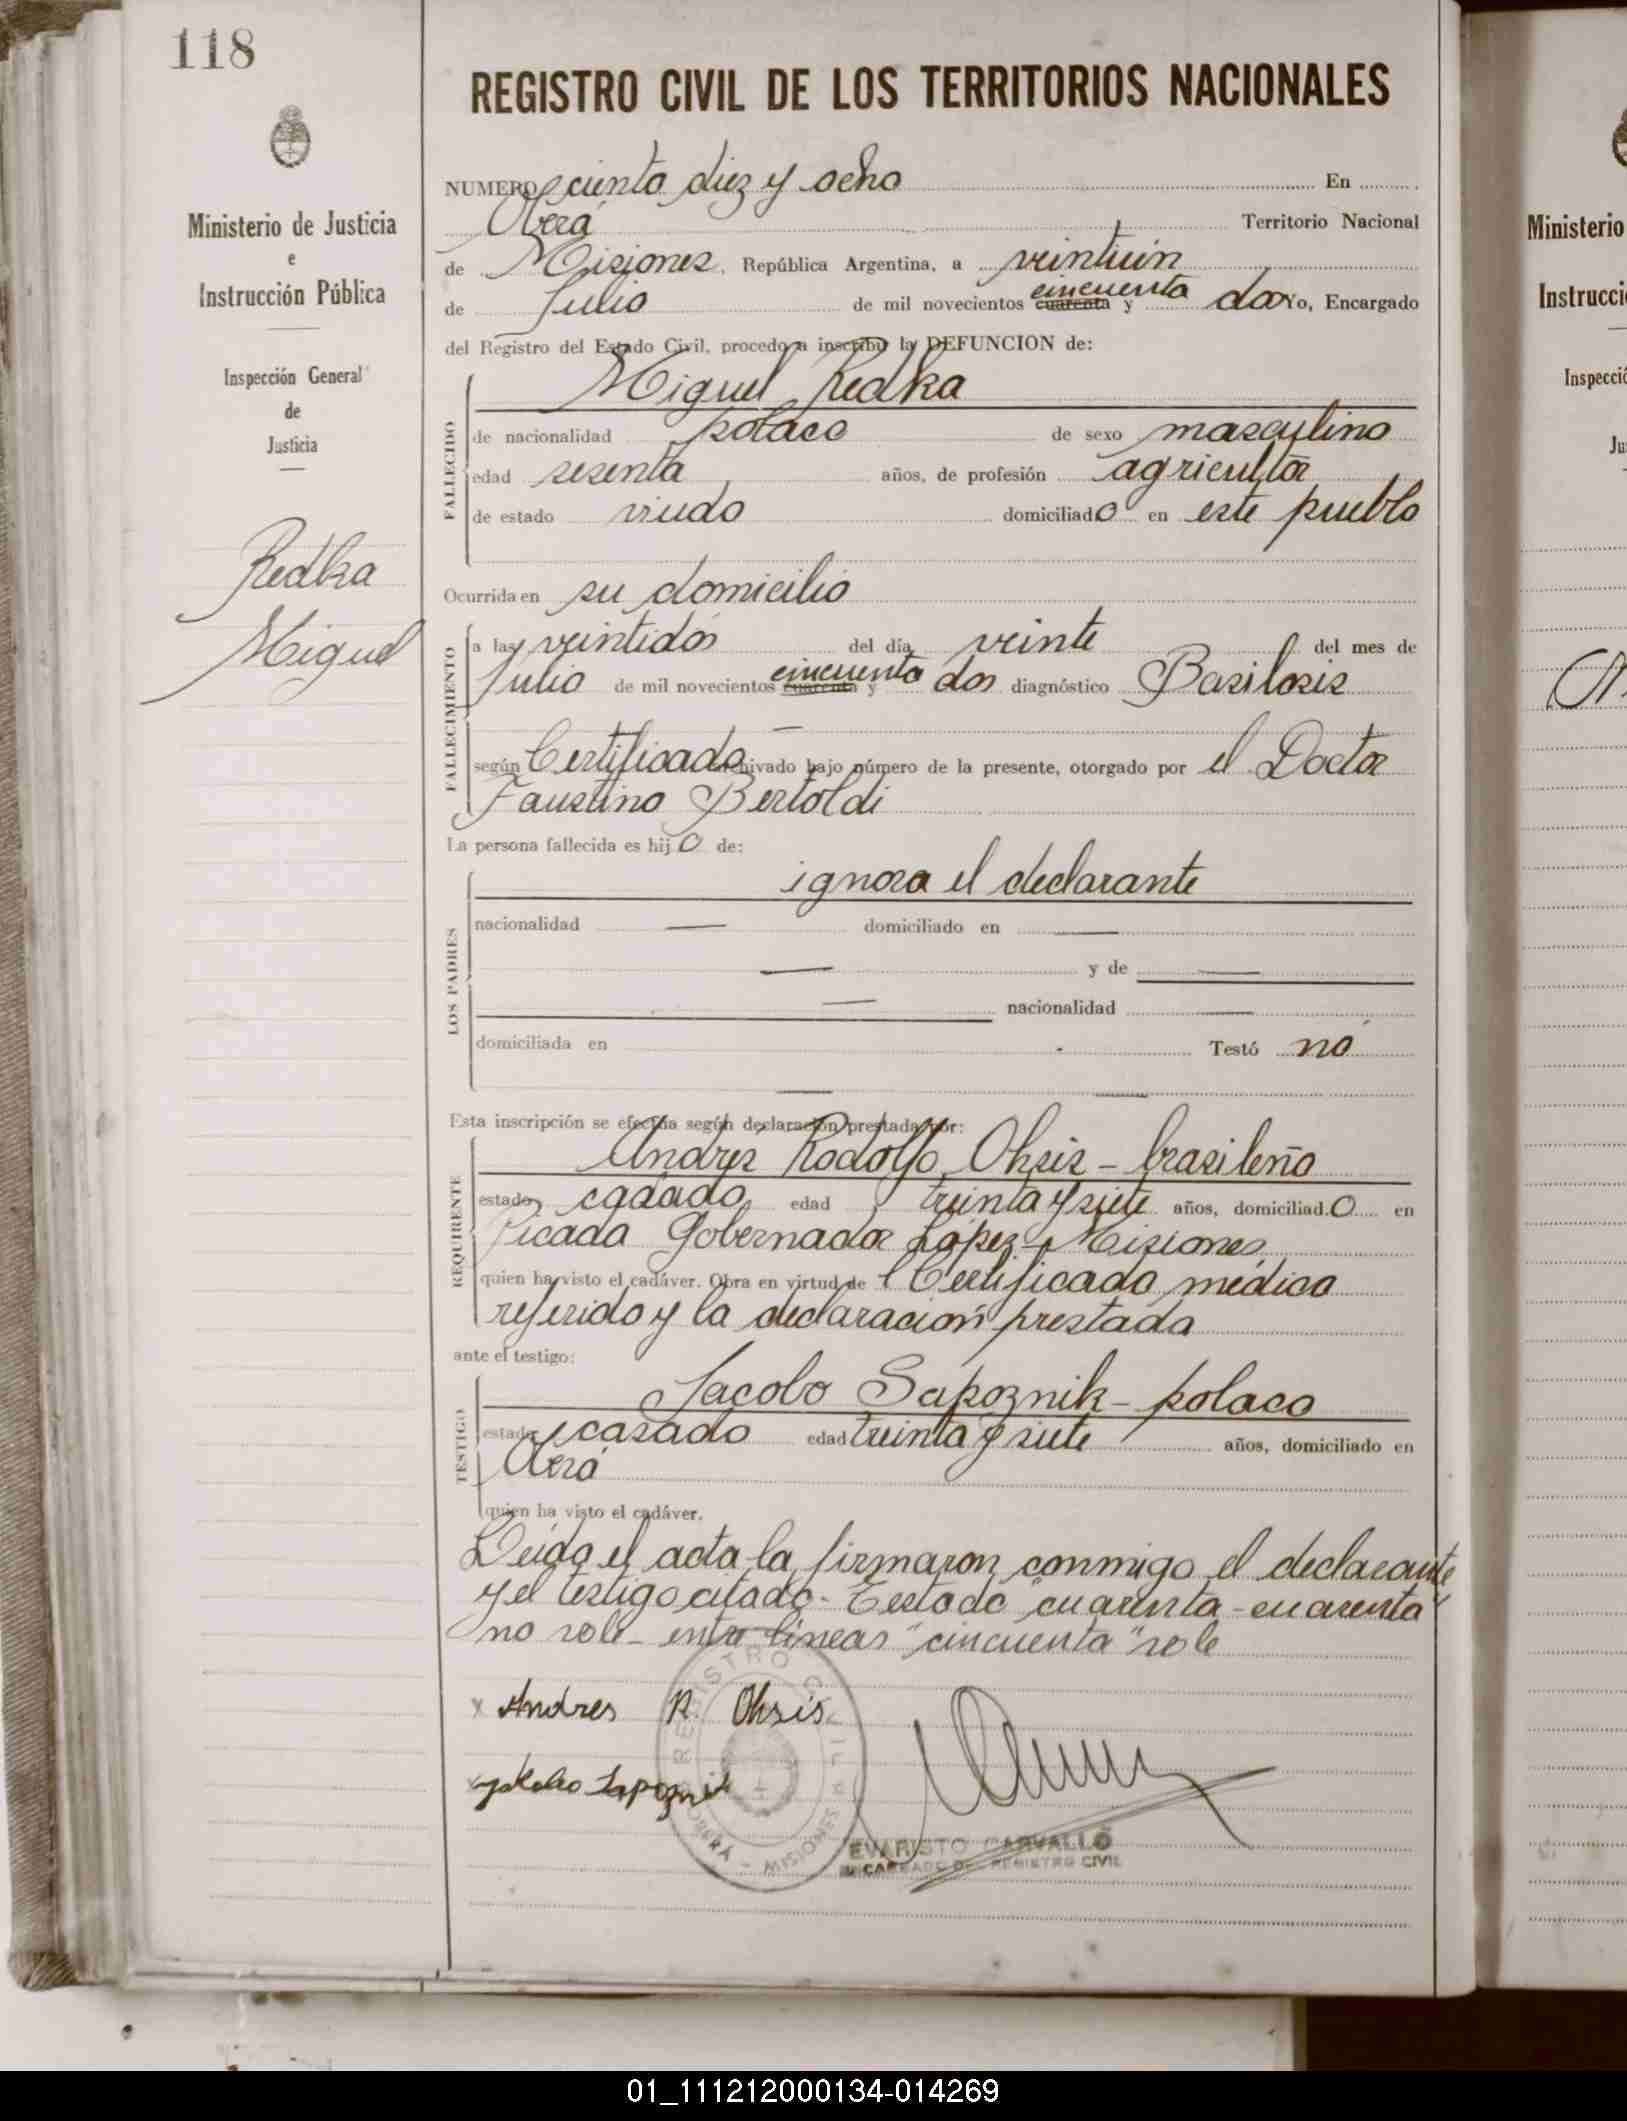 118
Ministerio de Justicia
e
Instrucción Pública
Inspección General
de
Justicia
Redka
Miguel
REGISTRO CIVIL DE LOS TERRITORIOS NACIONALES
NUMERO ciento diez y ocho En
Oberá Territorio Nacional
de Misiones, República Argentina, a veintiún
de Julio de mil novecientos cuarenta cincuenta y dos Yo, Encargado
del Registro del Estado Civil, procedo a inscribir la DEFUNCION de:
Miguel Redka
FALLECIDO
de nacionalidad polaco de sexo masculino
edad sesenta años, de profesión agricultor
de estado viudo domiciliado en este pueblo
Ocurrida en su domicilio
FALLECIMIENTO
a las veintidós del día veinte del mes de
Julio de mil novecientos cuarenta cincuenta y dos diagnóstico Basilosis
según Certificado archivado bajo número de la presente, otorgado por el Doctor
Faustino Bertoldi
La persona fallecida es hijo de:
LOS PADRES
ignora el declarante
nacionalidad — domiciliado en —
— y de —
— nacionalidad —
domiciliada en Testó no
— —
Esta inscripción se efectúa según declaración prestada por:
REQUIRENTE
Andres Rodolfo Ohsis - brasileño
estado casado edad treinta y siete años, domiciliado en
Picada Gobernador López - Misiones
quien ha visto el cadáver. Obra en virtud de l Certificado médico
referido y la declaración prestada
ante el testigo:
TESTIGO
Jacobo Sapoznik - polaco
estado casado edad treinta y siete años, domiciliado en
Oberá
quien ha visto el cadáver.
Leída el acta la firmaron conmigo el declarante
y el testigo citado - Testado "cuarenta - cuarenta"
no vale - entre líneas "cincuenta" vale
x Andres R. Ohsis
REGISTRO CIVIL
OBERÁ - MISIONES
EVARISTO CARVALLO
ENCARGADO DEL REGISTRO CIVIL
Ministerio
Instrucci
Inspecció
Ju
01_111212000134-014269